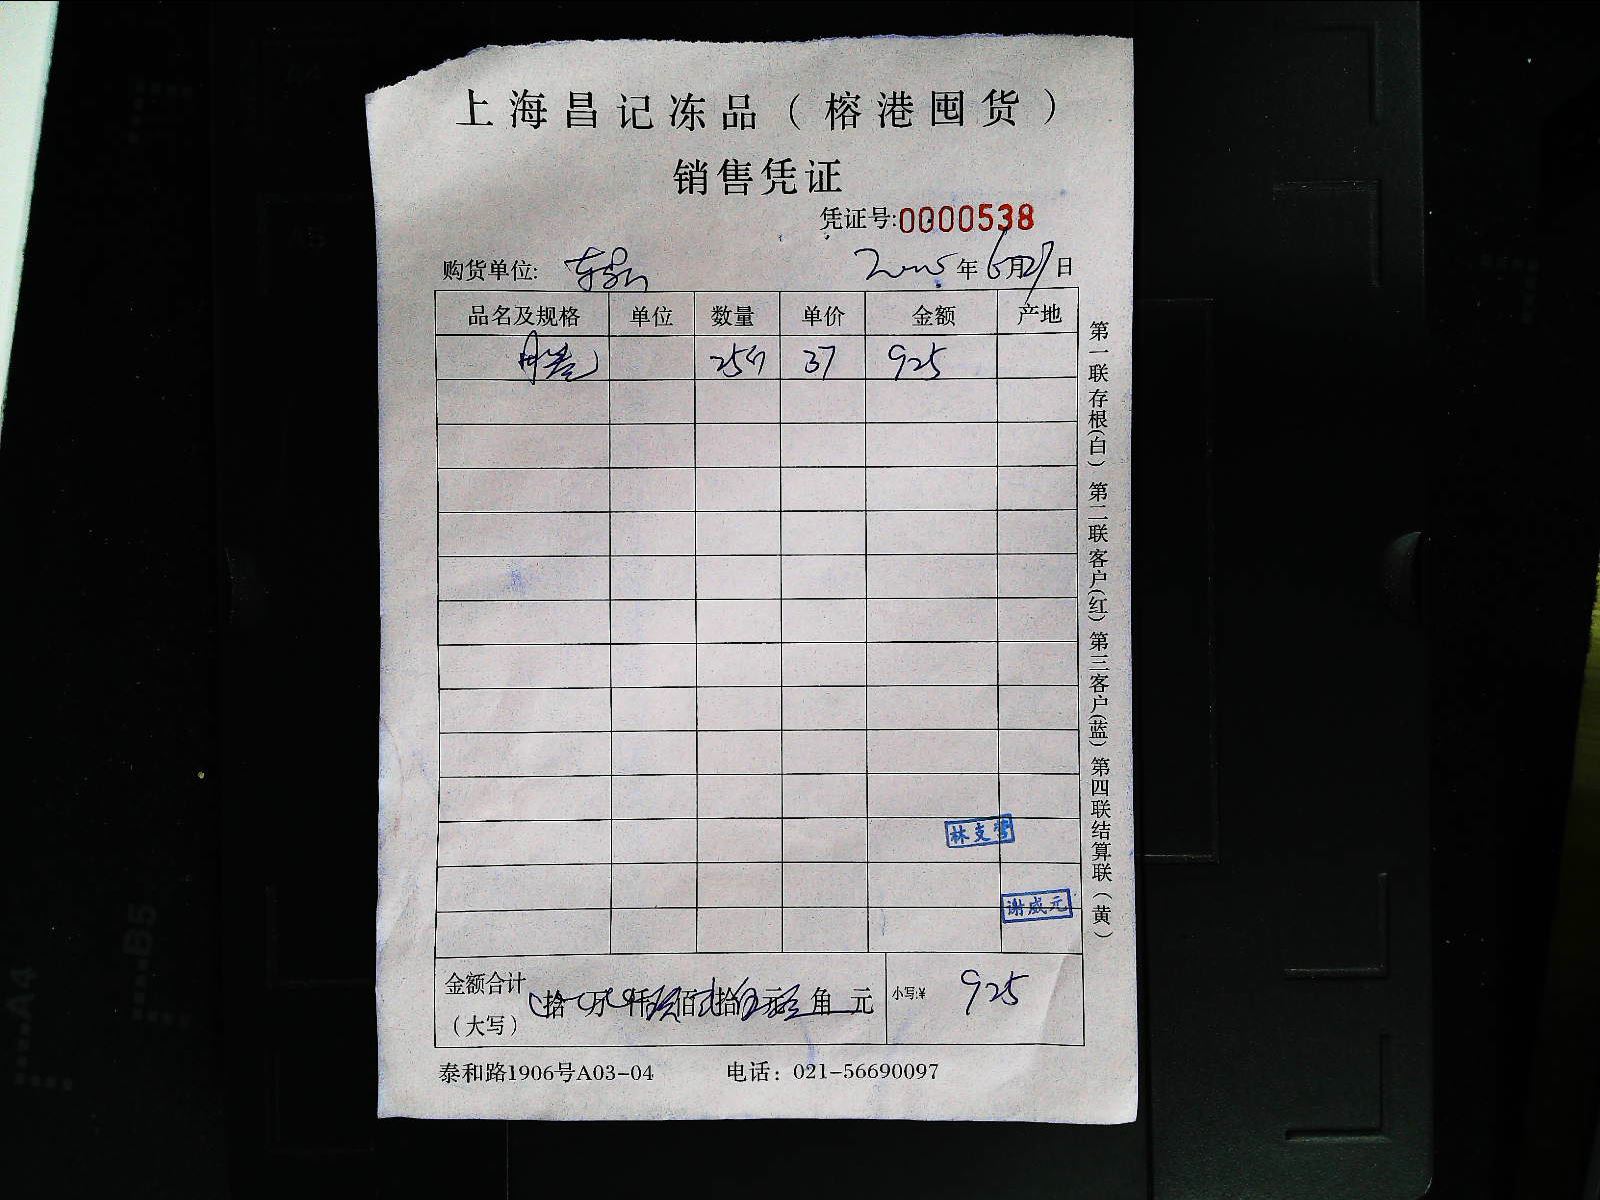 上海昌记冻品（榕港囤货）
销售凭证
凭证号:0000538
购货单位: 年6月27日
品名及规格 单位 数量 单价 金额 产地
25斤 37 925
林支营
谢威元
金额合计（大写） 拾 万 仟 佰 拾 元 角 元 小写:¥ 925
泰和路1906号A03-04 电话：021-56690097
第一联存根(白) 第二联客户(红) 第三客户(蓝) 第四联结算联(黄)